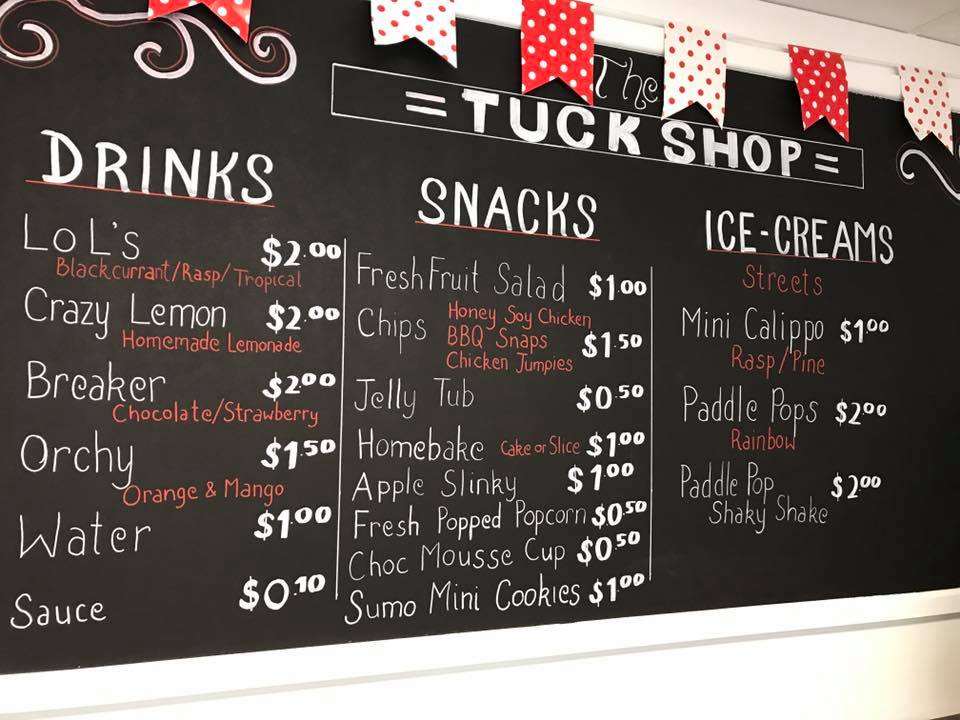 The
= TUCK SHOP =
DRINKS
LoL's $2.00
Blackcurrant/Rasp/Tropical
Crazy Lemon $2.00
Homemade Lemonade
Breaker $2.00
Chocolate/Strawberry
Orchy $1.50
Orange & Mango
Water $1.00
Sauce $0.10
SNACKS
Fresh Fruit Salad $1.00
Chips Honey Soy Chicken
BBQ Snaps $1.50
Chicken Jumpies
Jelly Tub $0.50
Homebake Cake or Slice $1.00
Apple Slinky $1.00
Fresh Popped Popcorn $0.50
Choc Mousse Cup $0.50
Sumo Mini Cookies $1.00
ICE-CREAMS
Streets
Mini Calippo $1.00
Rasp/Pine
Paddle Pops $2.00
Rainbow
Paddle Pop $2.00
Shaky Shake